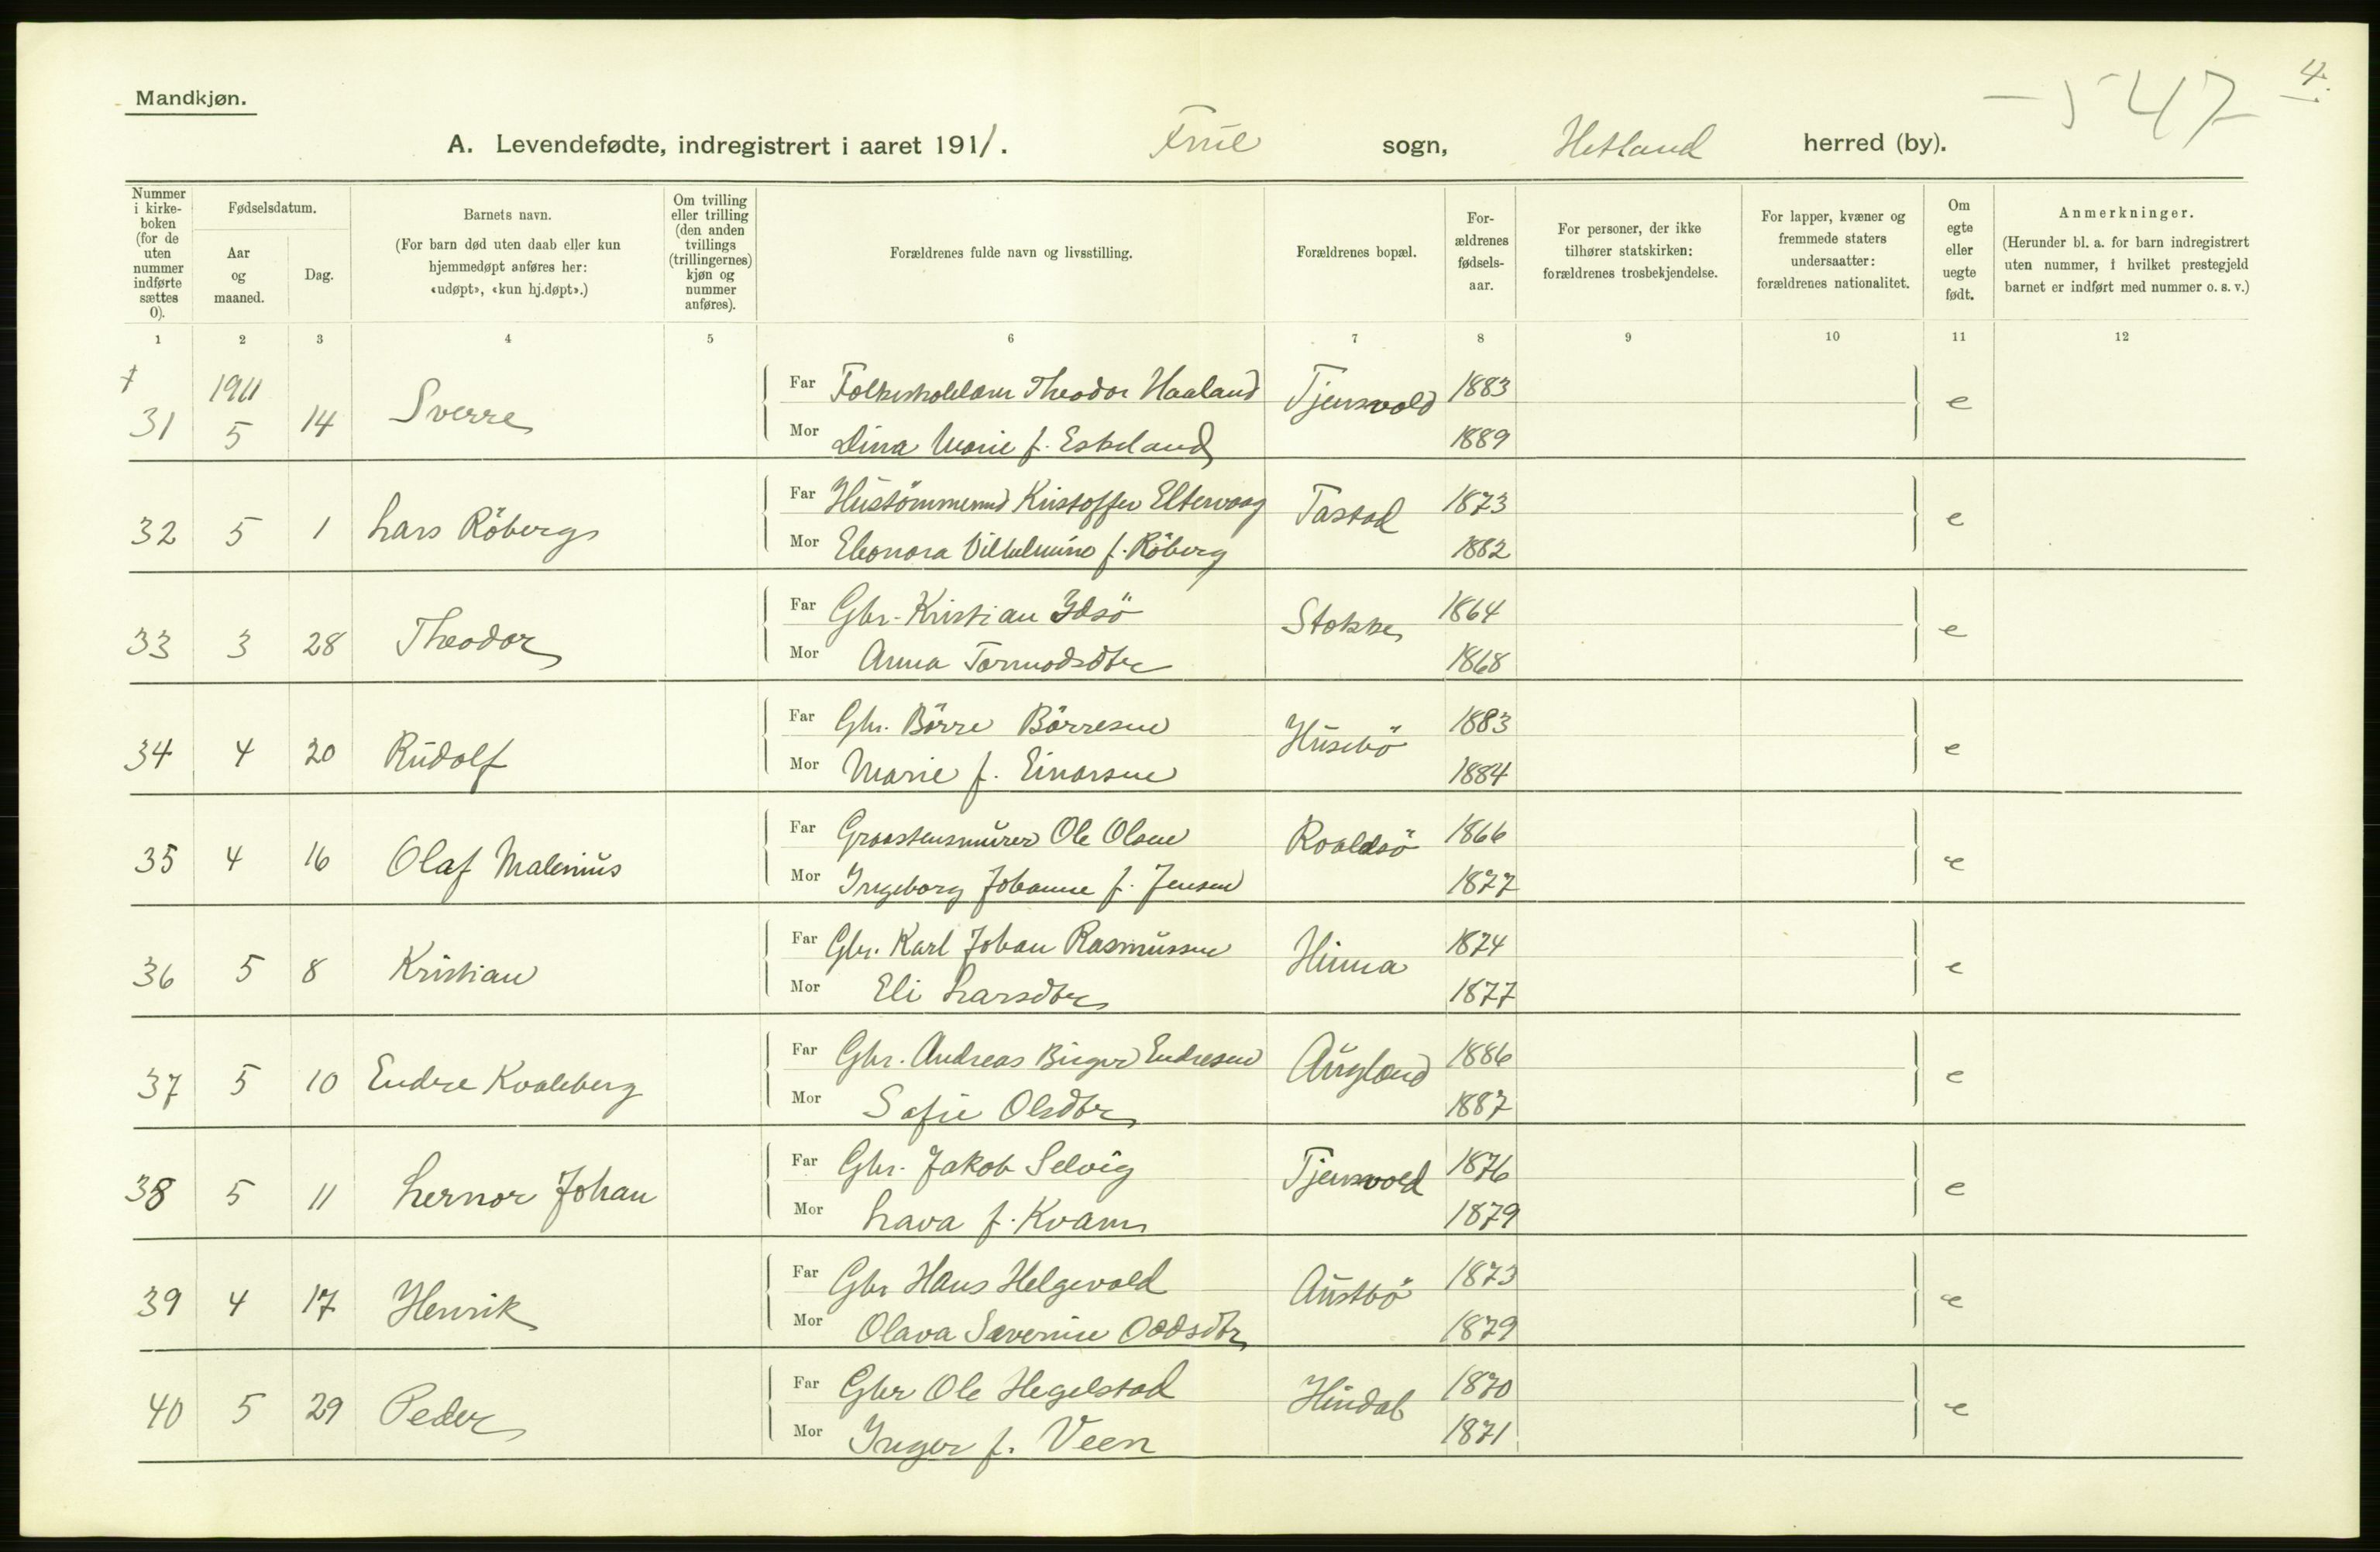 4.
-547
Mandkjøn.
A. Levendefødte, indregistrert i aaret 1911. Frue sogn, Hetland herred (by).
Nummer i kirke-boken (for de uten nummer indførte sættes 0).
Fødselsdatum.
Aar og maaned.
Dag.
Barnets navn.
(For barn død uten daab eller kun hjemmedøpt anføres her: «udøpt», «kun hj.døpt».)
Om tvilling eller trilling (den anden tvillings (trillingernes) kjøn og nummer anføres).
Forældrenes fulde navn og livsstilling.
Forældrenes bopæl.
For-ældrenes fødsels-aar.
For personer, der ikke tilhører statskirken: forældrenes trosbekjendelse.
For lapper, kvæner og fremmede staters undersaatter: forældrenes nationalitet.
Om egte eller uegte født.
Anmerkninger.
(Herunder bl. a. for barn indregistrert uten nummer, i hvilket prestegjeld barnet er indført med nummer o. s. v.)
1 2 3 4 5 6 7 8 9 10 11 12
31 1911 5 14 Sverre Far Folkeskolelærer Theodor Haaland Tjensvold 1883 e
Mor Dina Marie f. Eskeland 1889
32 5 1 Lars Röberg Far Hustömmermd Kristoffer Eltervaag Tastad 1873 e
Mor Eleonora Vilhelmine f. Röberg 1882
33 3 28 Theodor Far Gbr. Kristian Idsö Stokke 1864 e
Mor Anna Tormodsdtr 1868
34 4 20 Rudolf Far Gbr. Börre Börresen Husebö 1883 e
Mor Marie f. Einarsen 1884
35 4 16 Olaf Malenius Far Graastensmurer Ole Olsen Roaldsö 1866 e
Mor Ingeborg Johanne f. Jensen 1877
36 5 8 Kristian Far Gbr. Karl Johan Rasmussen Hinna 1874 e
Mor Eli Larsdtr 1877
37 5 10 Endre Kvaleberg Far Gbr. Andreas Birger Endresen Augland 1886 e
Mor Sofie Olsdtr 1887
38 5 11 Lernor Johan Far Gbr. Jakob Selvig Tjensvold 1876 e
Mor Lava f. Kvam 1879
39 4 17 Henrik Far Gbr Hans Helgevold Austbö 1873 e
Mor Olava Severine Oddsdtr 1879
40 5 29 Peder Far Gbr Ole Hegelstad Hindal 1870 e
Mor Inger f. Veen 1871